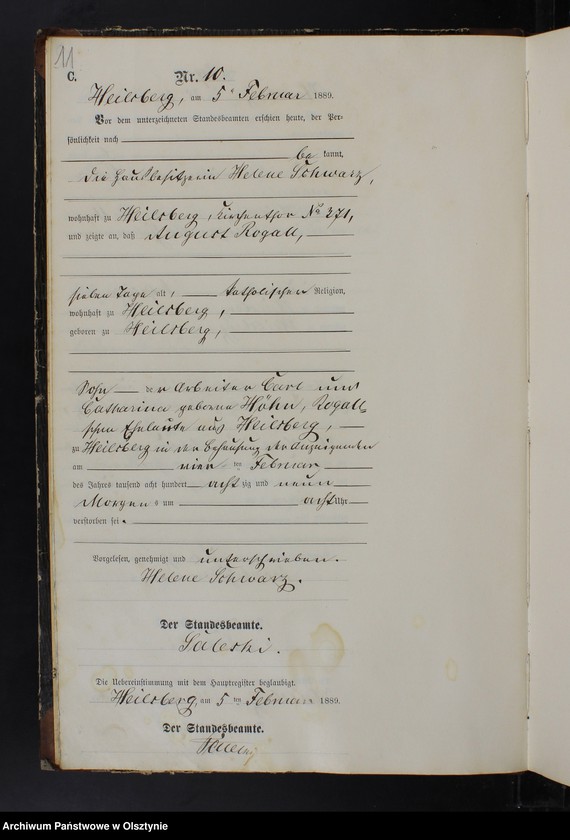 11
C.
Nr. 10.
Heilsberg, am 5ten Februar 1889.
Vor dem unterzeichneten Standesbeamten erschien heute, der Per-
sönlichkeit nach
be kannt,
die Hausbesitzerin Helene Schwarz,
wohnhaft zu Heilsberg, Kirchenthor No 271,
und zeigte an, daß August Rogall,
sieben Tage alt, katholischer Religion,
wohnhaft zu Heilsberg,
geboren zu Heilsberg,
Sohn der Arbeiter Carl und
Catharina geborne Höhn, Rogall
schen Eheleute aus Heilsberg,
zu Heilsberg in der Behausung der Anzeigenden
am vier ten Februar
des Jahres tausend acht hundert acht zig und neun
Morgens um acht Uhr
verstorben sei.
Vorgelesen, genehmigt und unterschrieben.
Helene Schwarz.
Der Standesbeamte.
Die Uebereinstimmung mit dem Hauptregister beglaubigt.
Heilsberg, am 5ten Februar 1889.
Der Standesbeamte.
Archiwum Państwowe w Olsztynie